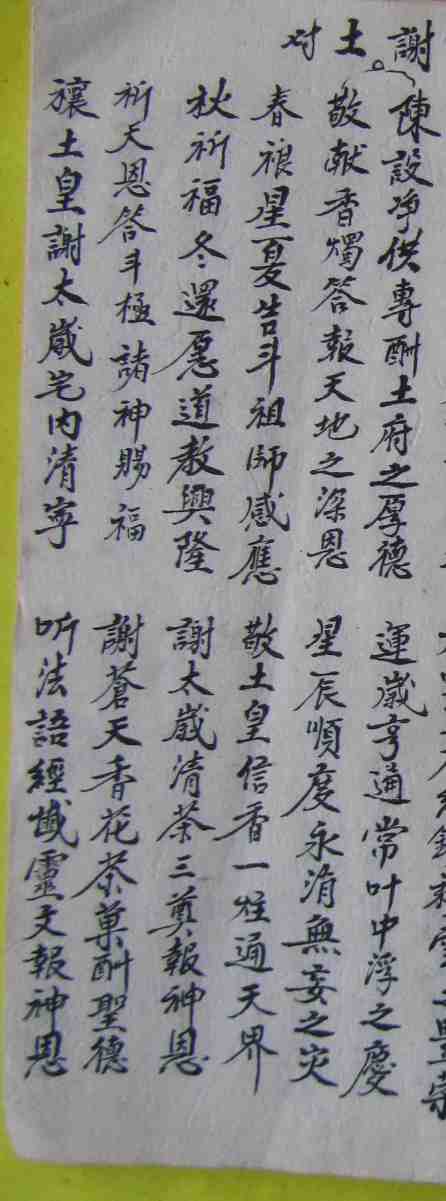 謝土对
陳設净供專酬土府之厚德
敬献香燭答報天地之深恩
春禳星夏告斗祖師感應
秋祈福冬還愿道教興隆
祈天恩答斗極諸神賜福
禳土皇謝太嵗宅内清寧
運嵗亨通常叶中浮之慶
星辰順度永消無妄之灾
敬土皇信香一炷通天界
謝太嵗清茶三奠報神恩
謝蒼天香花茶菓酬聖德
听法語經懺靈文報神恩